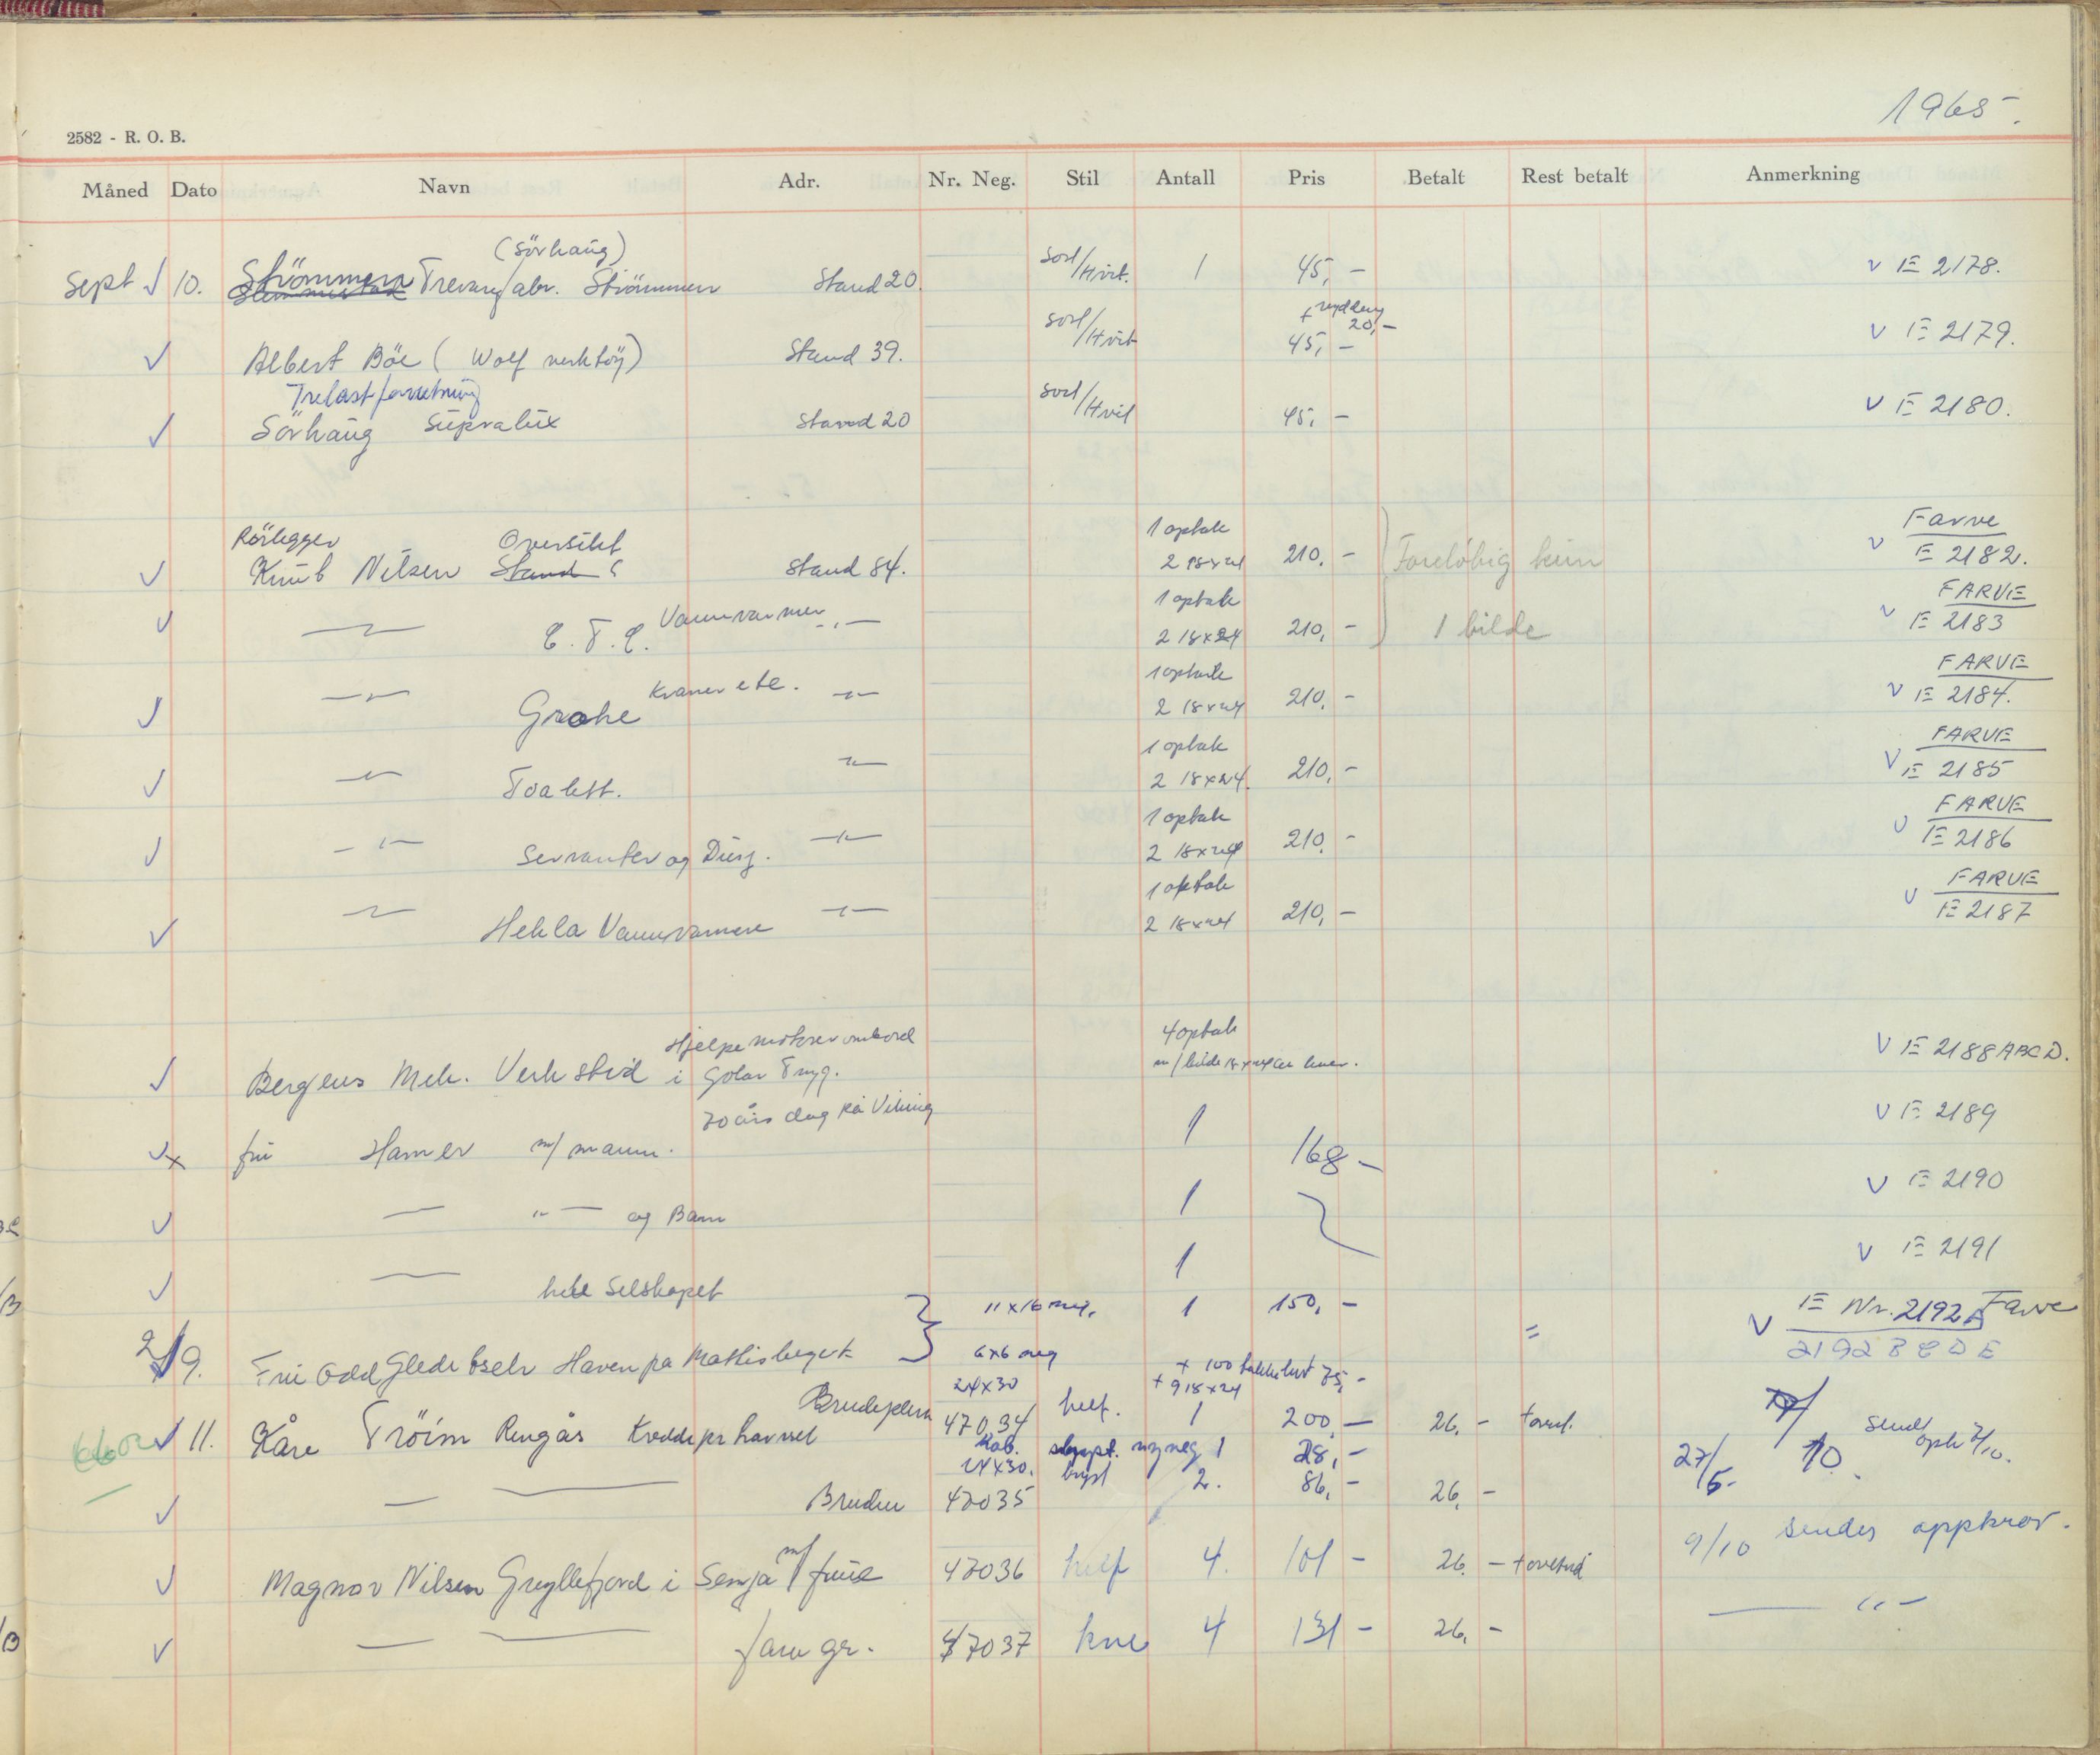 1965.
2582 - R. O. B.
Måned Dato Navn Adr. Nr. Neg. Stil Antall Pris Betalt Rest betalt Anmerkning
(Sörhaug)
Sept √ 10. Strömmen Trevarefabr. Strömmen Stand 20. Sort/Hvit. 1 45,- v E 2178.
+ rydding 20,-
√ Albert Böe (Wolf verktöy) Stand 39. Sort/Hvit 45,- v E 2179.
Trelastforretning
√ Sörhaug Supralux Stand 20 Sort/Hvit 45,- v E 2180.
Rörlegger Oversikt 1 optak Farve
√ Knut Nilsen Stand 84. 2 18x24 210,- Foreløbig kun v E 2182.
Vannvarmer 1 optak FARVE
√ -"- C.T.C. -"- 2 18x24 210,- 1 bilde v E 2183
Kraner etc. 1 optak FARVE
√ -"- Grohe -"- 2 18x24 210,- v E 2184.
1 optak FARVE
√ -"- Toalett. -"- 2 18x24. 210,- v E 2185
1 optak FARVE
√ -"- Servanter og Dusj. -"- 2 18x24 210,- v E 2186
1 optak FARVE
√ -"- Hekla Vannvarmere -"- 2 18x24 210,- v E 2187
Hjelpemotorer ombord 4 optak
√ Bergens Mek. Verksted i Golar Tryg. m/ bilde 18x24 av hver. v E 2188 ABCD.
70 års dag på Viking
√x fru Hamer m/ mann. 1 168- v E 2189
√ - "- og Barn 1 v E 2190
√ - hele Selskapet 1 v E 2191
11x16 neg. 1 150,- v E Nr. 2192 A Farve
2/9. Fru Odd Gjedebsek Haven på Mattisberget 6x6 neg = 2192 B C D E
24x30 + 100 takkekort 75,-
+ 9 18x24
√ 11. Kåre Tröim Rengås Brudeplan 47034 helf. 1 200,- 26,-
Kab. ny neg 1 28,- 27/5- 10. send opk 7/10.
24x30. bryst
√ - Bruden 47035 2. 86,- 26,-
9/10 sendes oppkrav.
√ Magnar Nilsen Gryllefjord i Senja m/ frue 47036 helf 4. 101- 26,-
√ - fam gr. 47037 kne 4 131- 26,- -"-